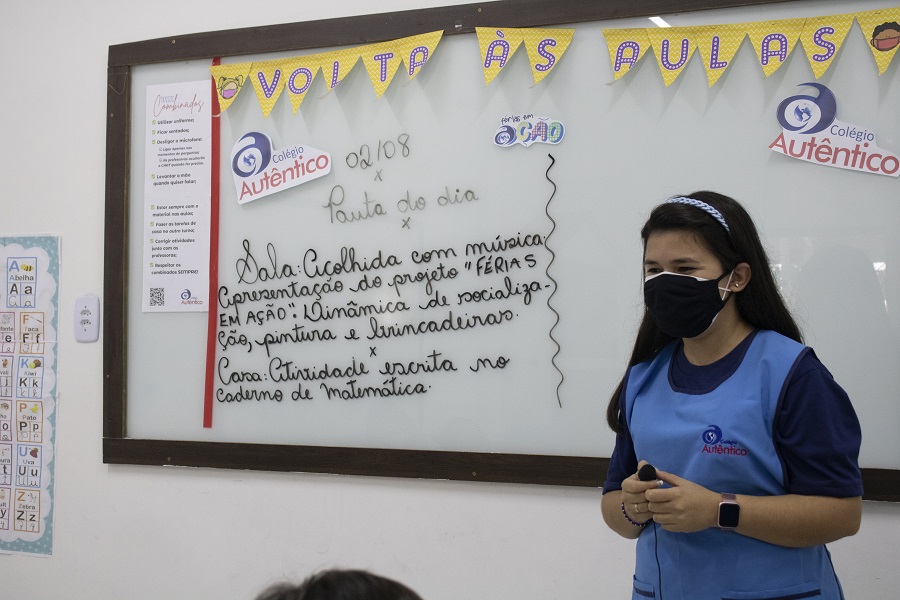 VOLTA ÀS AULAS
Combinados
Utilizar uniforme;
Ficar sentados;
Desligar o microfone;
Levantar a mão
quando quiser falar;
Estar sempre com o
material nas aulas;
Fazer as tarefas de
casa no outro turno;
Corrigir atividades
junto com as
professoras;
Respeitar os
combinados SEMPRE!
Autêntico
Colégio
Autêntico
férias em
AÇÃO
Colégio
Autêntico
02/08
x
Pauta do dia
x
Sala: Acolhida com música;
apresentação do projeto "FÉRIAS
EM AÇÃO". Dinâmica de socializa-
ção, pintura e brincadeiras.
x
Casa: Atividade escrita no
caderno de Matemática.
A
Abelha
Aa
F
Faca
Ff
K
Kiwi
Kk
P
Pato
Pp
U
Uva
Uu
Z
Zebra
Zz
Colégio
Autêntico